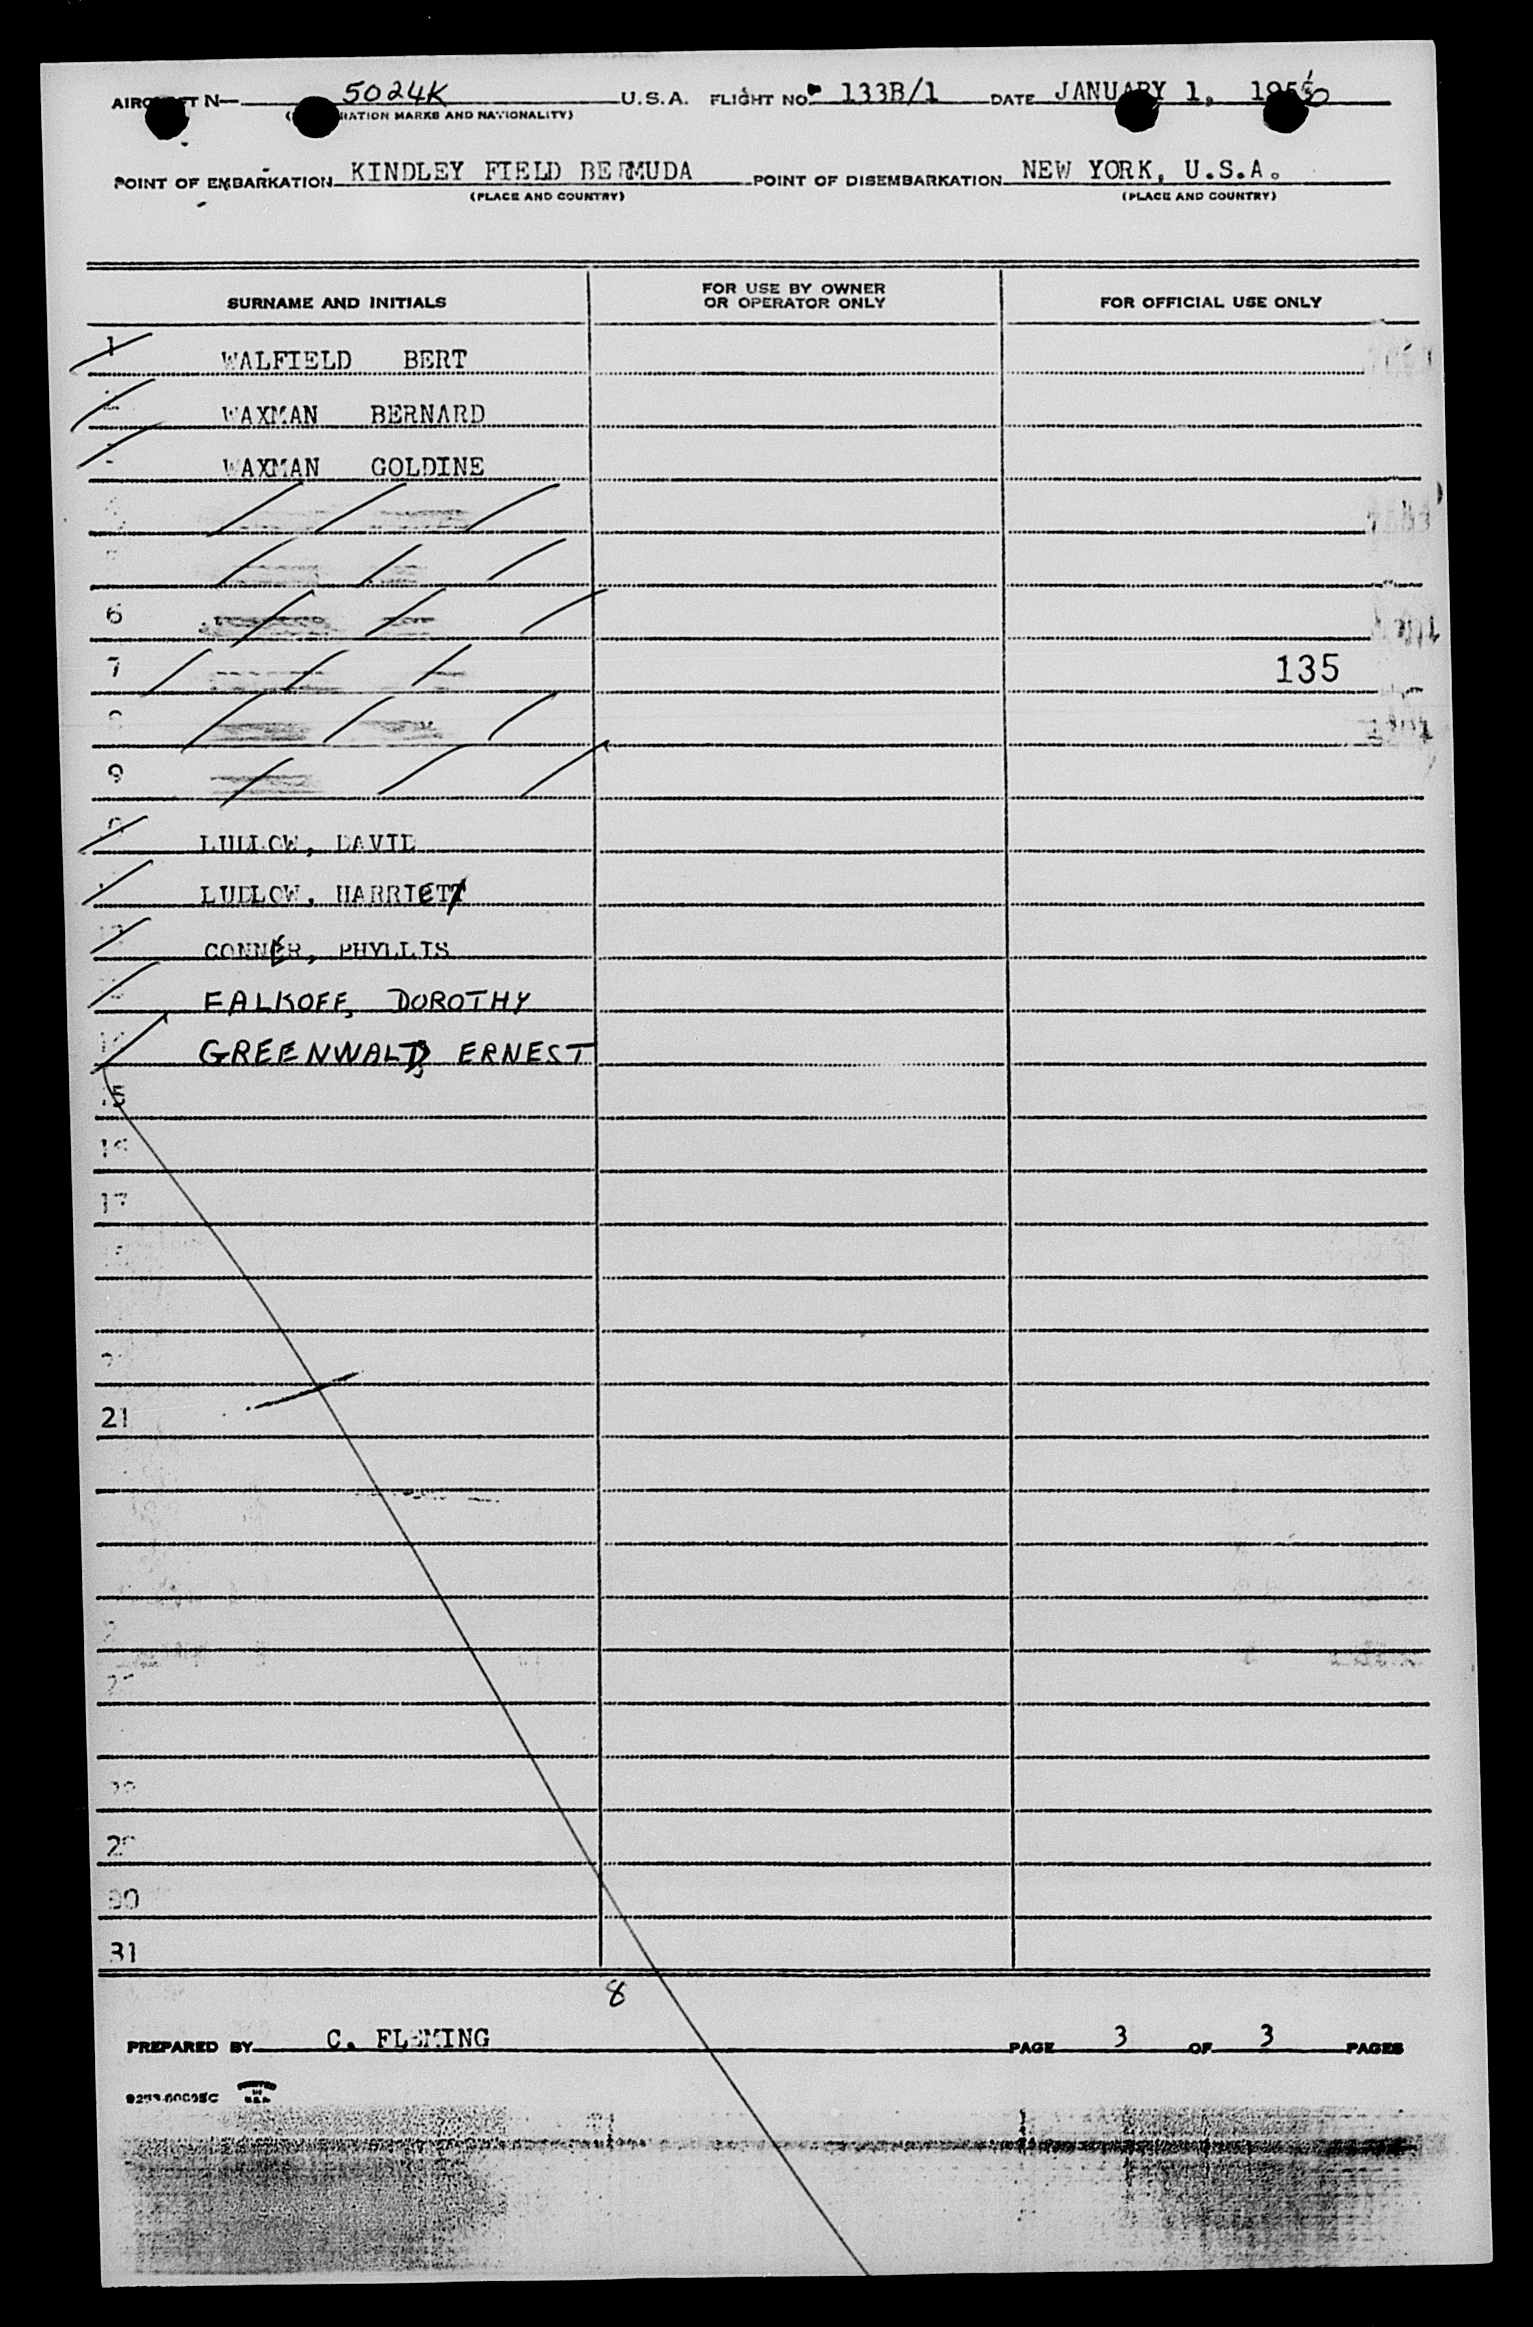 AIRCRAFT N- 5024K U.S.A. FLIGHT NO. 133B/1 DATE JANUARY 1, 195
(REGISTRATION MARKS AND NATIONALITY)
POINT OF EMBARKATION KINDLEY FIELD BERMUDA POINT OF DISEMBARKATION NEW YORK, U.S.A.
(PLACE AND COUNTRY) (PLACE AND COUNTRY)
SURNAME AND INITIALS FOR USE BY OWNER OR OPERATOR ONLY FOR OFFICIAL USE ONLY
1 WALFIELD BERT
2 WAXMAN BERNARD
WAXMAN GOLDINE
6
7 135
8
9
LUDLOW, DAVID
LUDLOW, HARRIET
CONNER, PHYLLIS
FALKOFF, DOROTHY
14 GREENWALD, ERNEST
15
16
17
21
29
30
31
8
PREPARED BY C. FLEMING PAGE 3 OF 3 PAGES
PRINTED IN U.S.A.